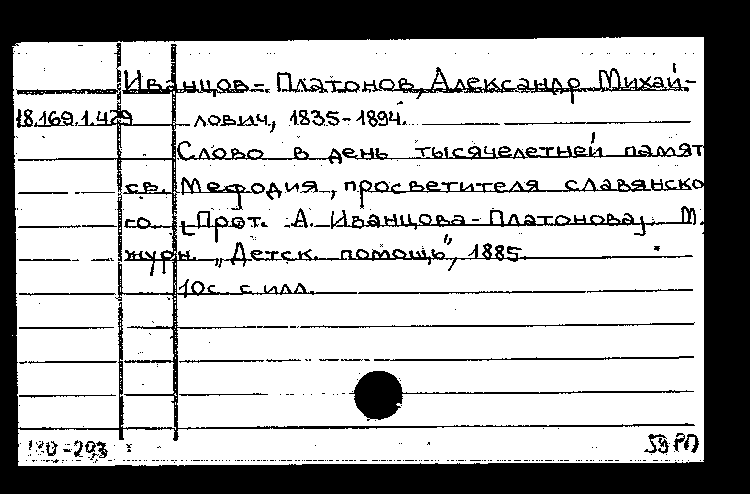 Иванцов-Платонов, Александр Михай-
18.169.1.429 лович, 1835-1894.
Слово в день тысячелетней памят
св. Мефодия, просветителя славянско
го. [Прот. А. Иванцова-Платонова]. М.,
журн. „Детск. помощь", 1885.
10с. с илл.
-293 59 РП